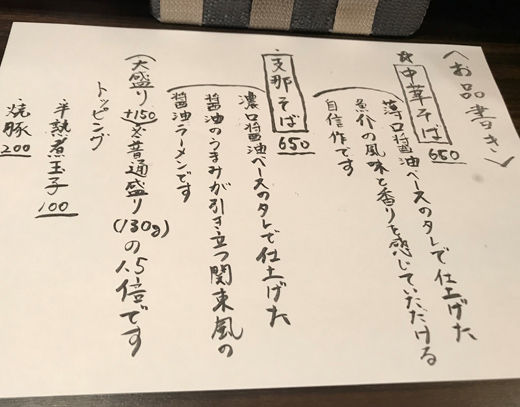 〈お品書き〉
☆中華そば 650
薄口醤油ベースのタレで仕上げた
魚介の風味と香りを感じていただける
自信作です
・支那そば 650
濃口醤油ベースのタレで仕上げた
醤油のうまみが引き立つ関東風の
醤油ラーメンです
(大盛り +150 は普通盛り(130g)の1.5倍です
トッピング
半熟煮玉子 100
焼豚 200